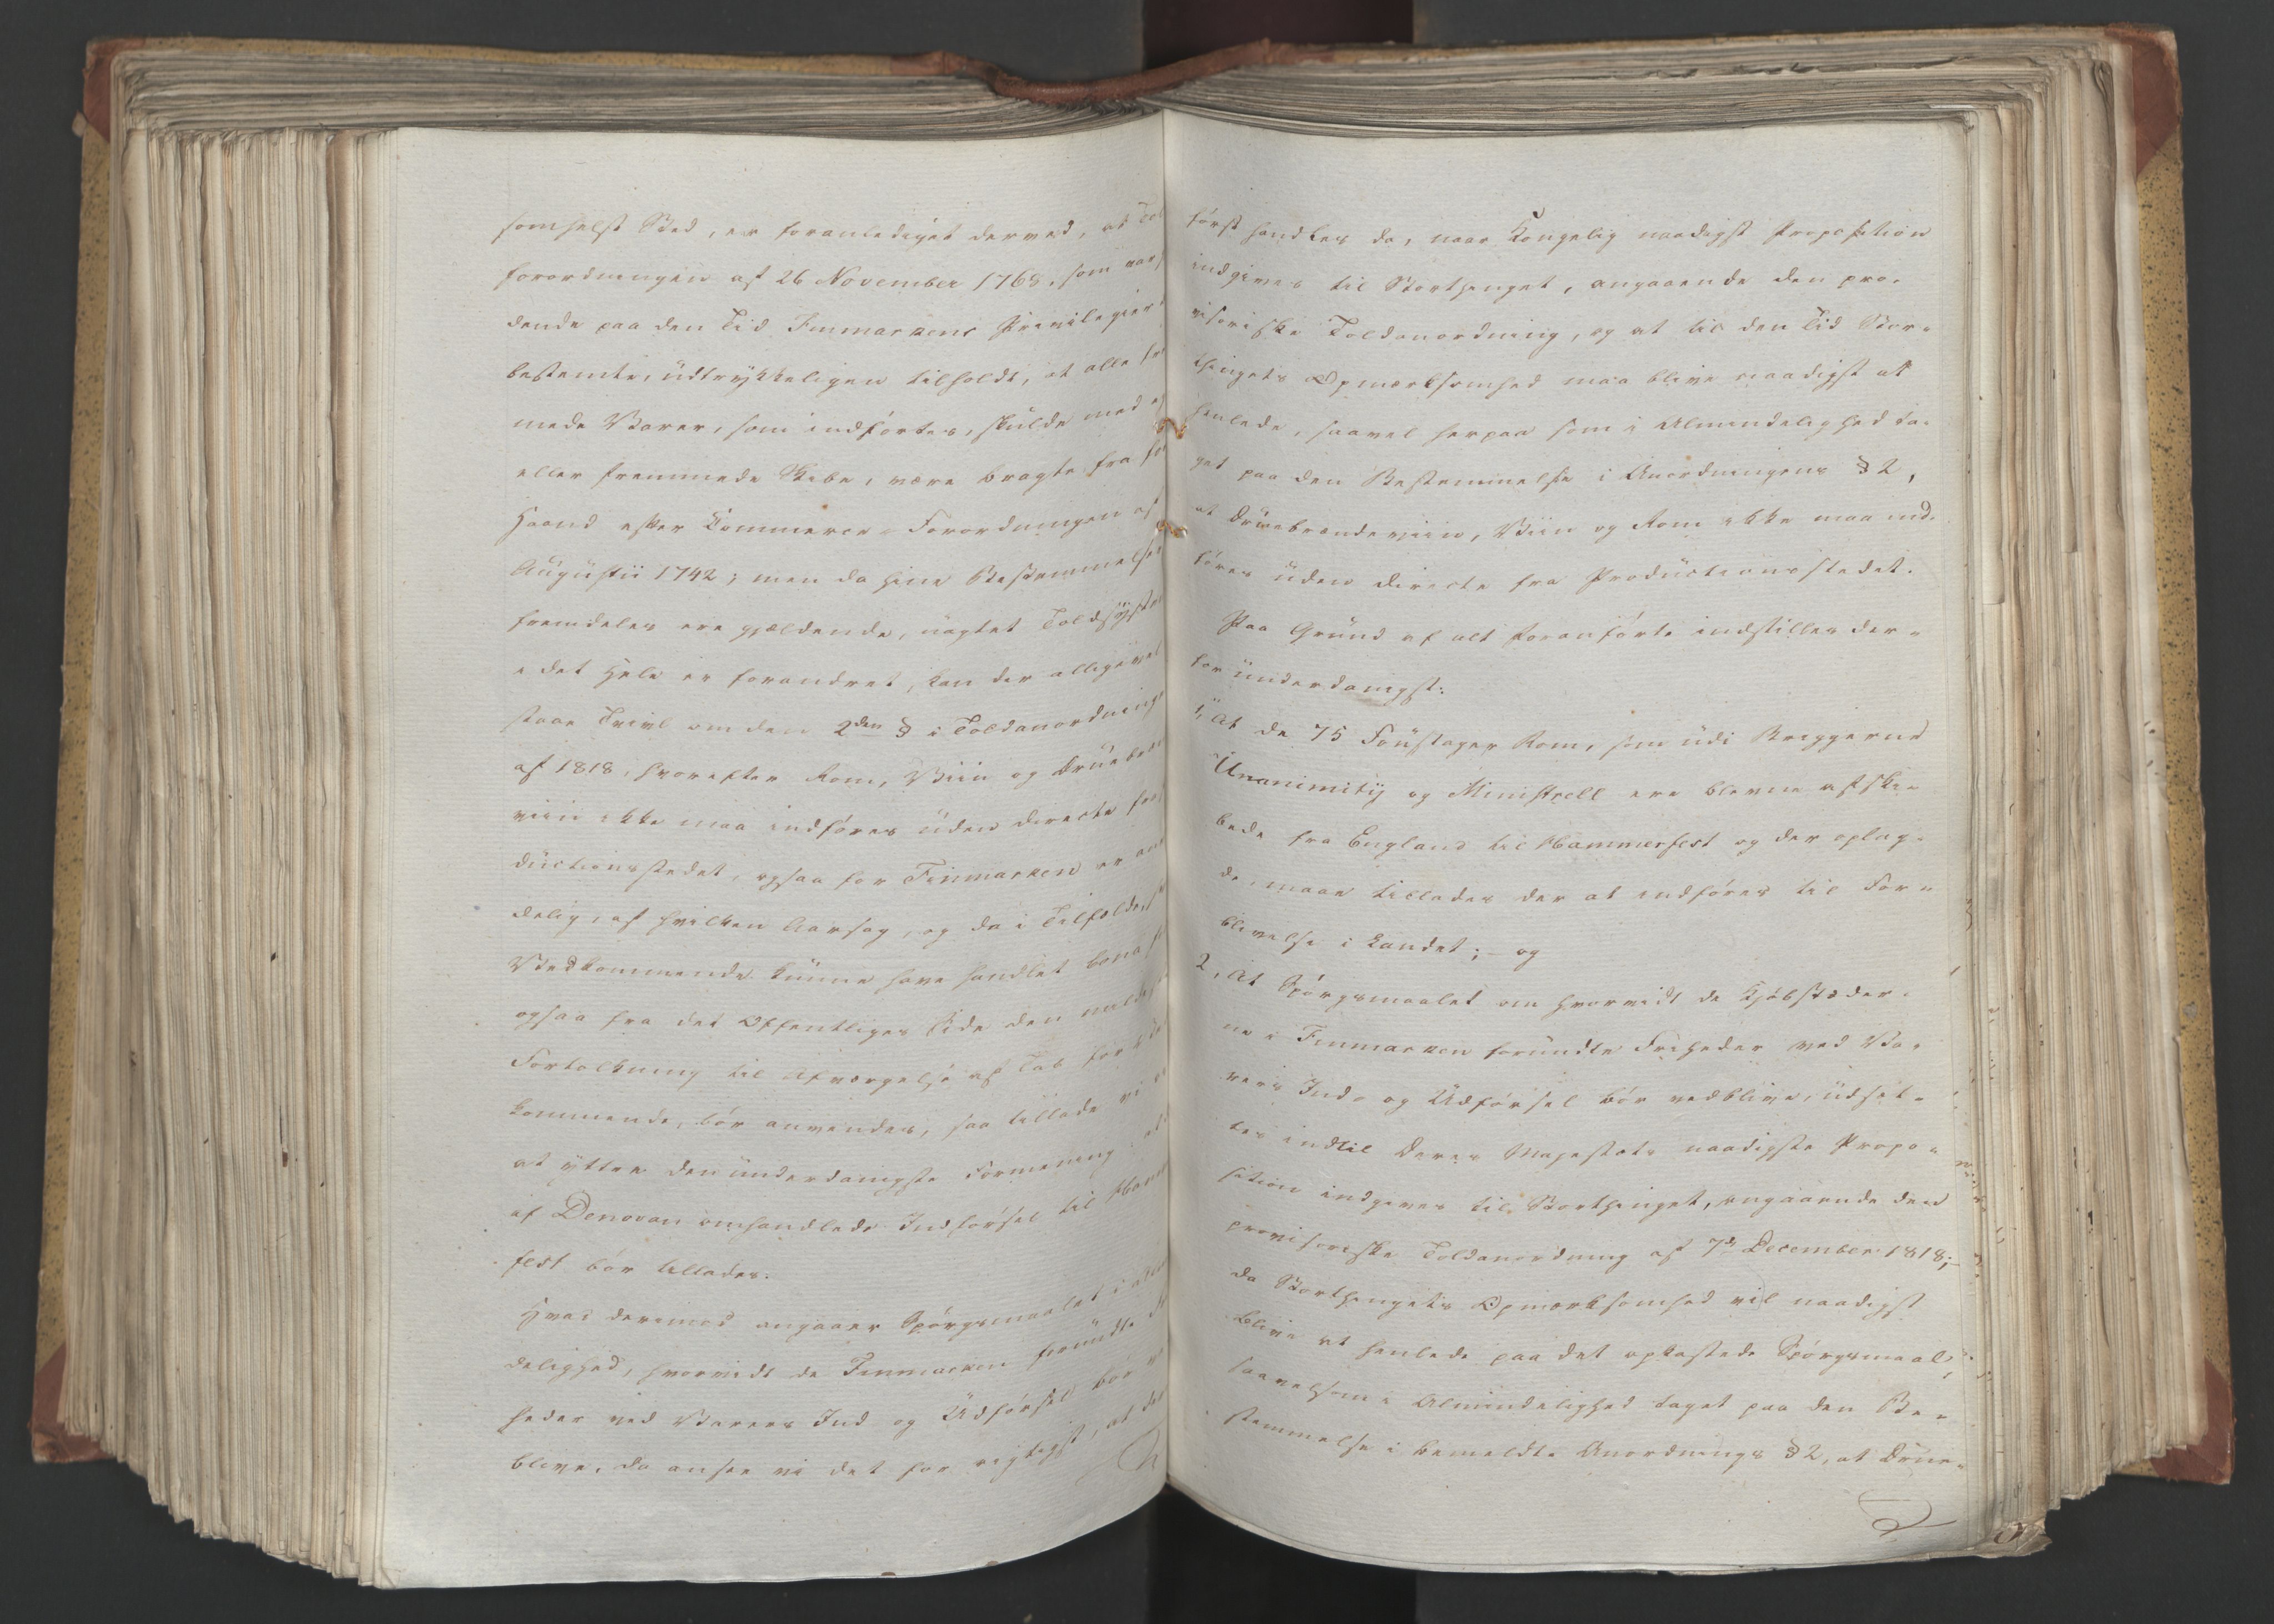 somhelst Sted, er foranlediget derved, at Tol
forordningen af 26 November 1768, som
dende paa den Tid Finmarkens Privilegier
bestemte, üdtrykkeligen tilholdt, at alle fre
mede Varer, som indførtes, skulde med
eller fremmede Skibe, være bragte fra
Haand efter Commerce-Forordningen af
Augustii 1742; men da hine Bestemmelser
fremdeles ere gjældende, uagtet Toldsyste
i det Hele er forandret, kan der alligevel
staae Tvivl om den 2den § i Toldanordning
af 1818, hvorefter Rom, Viin og Druebræ
viin ikke maa indføres üden directe fra
ductionsstedet, ogsaa for Finmarken er an
delig, af hvilken Aarsag, og da i Tilfælde,
Vedkommende künne have handlet bona
ogsaa fra det Offentliges Side den milde
Fortolkning til Afværgelse af Tab for
kommende, bør anvendes, saa tillade vi
at yttre den ünderdanigste Formening at
af Denovan omhandlede Indførsel til Ham
fest bør tillades.
Hvad derimod angaaer Spørgsmaalet i
delighed, hvorvidt de Finmarken forundte
heder ved Varers Ind og Udførsel bør
blive, da ansee vi det for rigtigst, at det
først handles da, naar Kongelig naadigst Proposition
indgives til Storthinget, angaaende den pro-
visoriske Toldanordning, og at til den Tid Stor-
thingets Opmærksomhed maa blive naadigst at
henlede, saavel herpaa som i Almindelighed ta-
get paa den Bestemmelse i Anordningens § 2,
at Druebrændeviin, Viin og Rom ikke maa ind-
føres üden directe fra Productionsstedet.
Paa Gründ af alt foranførte indstilles der-
for ünderdanigst:
1, At de 75 Foustager Rom, som üdi Briggerne
Unanimity og Ministrell ere blevne afski-
bede fra England til Hammerfest og der oplag-
de, maae tillades der at indføres til For-
blivelse i Landet; - og
2, At Spørgsmaalet om hvorvidt de Kjøbstæder-
ne i Finmarken forundte Friheder ved Va-
rers Ind- og Udførsel bør vedblive, üdsæt-
tes indtil Deres Majestæts naadigste Propo-
sition indgives til Storthinget, angaaende den
provisoriske Toldanordning af 7de December 1818;-
da Storthingets Opmærksomhed vil naadigst
blive at henlede paa det opkastede Spørgsmaal,
saavelsom i Almindelighed taget paa den Be-
stemmelse i bemeldte Anordnings § 2, at Drue-